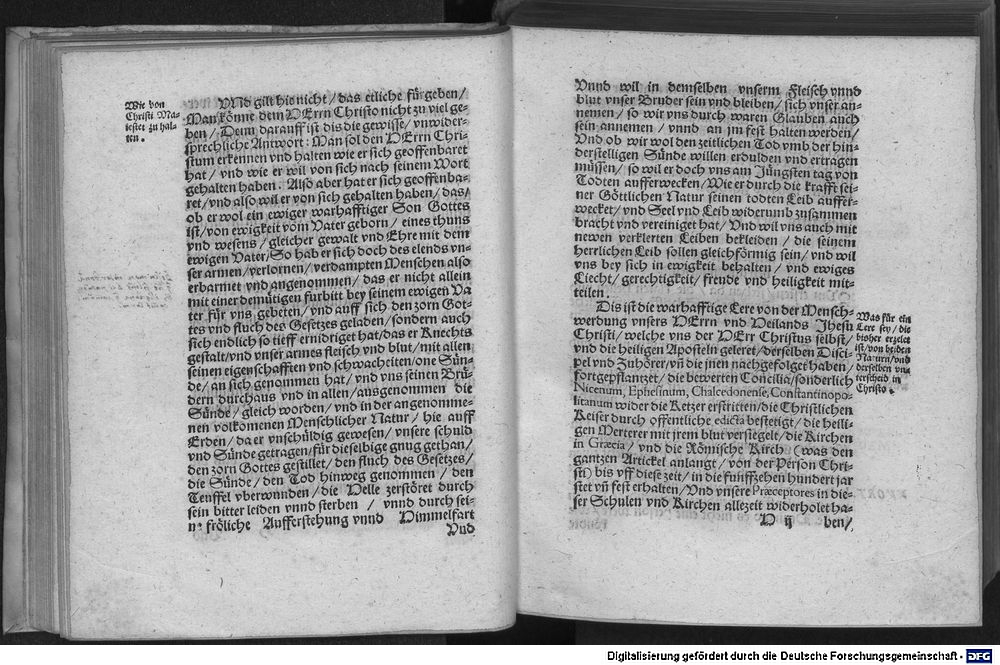 Wie von
Christi Ma-
iestet zu hal-
ten.
VNd gilt hie nicht / das etliche fürgeben /
Man könne dem HErrn Christo nicht zu viel ge-
ben / Denn darauff ist dis die gewisse / vnwider-
sprechliche Antwort: Man sol den HErrn Chri-
stum erkennen vnd halten wie er sich geoffenbaret
hat / vnd wie er wil von sich nach seinem Wort
gehalten haben. Also aber hat er sich geoffenba-
ret / vnd also wil er von sich gehalten haben / das /
ob er wol ein ewiger warhafftiger Son Gottes
ist / von ewigkeit vom Vater geborn / eines thuns
vnd wesens / gleicher gewalt vnd Ehre mit dem
ewigen Vater / So hab er sich doch des elends vn-
ser armen / verlornen / verdampten Menschen also
erbarmet vnd angenommen / das er nicht allein
mit einer demütigen fürbit bey seinem ewigen Va
ter für vns gebeten / vnd auff sich den zorn Got-
tes vnd fluch des Gesetzes geladen / sondern auch
sich endlich so tieff ernidriget hat / das er Knechts
gestalt / vnd vnser armes fleisch vnd blut / mit allen
seinen eigenschafften vnd schwacheiten / one Sün-
de / an sich genommen hat / vnd vns seinen Brü-
dern durchaus vnd in allen / ausgenommen die
Sünde / gleich worden / vnd in der angenomme-
nen volkomenen Menschlicher Natur / hie auff
Erden / da er vnschüldig gewesen / vnsere schuld
vnd Sünde getragen / für dieselbige gnug gethan /
den zorn Gottes gestillet / den fluch des Gesetzes /
die Sünde / den Tod hinweg genommen / den
Teuffel vberwunden / die Helle zerstöret durch
sein bitter leiden vnnd sterben / vnnd durch sei-
ne fröliche Aufferstehung vnnd Himmelfart
Vnd
Vnnd wil in demselben vnserm Fleisch vnnd
blut vnser Bruder sein vnd bleiben / sich vnser an-
nemen / so wir vns durch waren Glauben auch
sein annemen / vnnd an jm fest halten werden /
Vnd ob wir wol den zeitlichen Tod vmb der hin-
derstelligen Sünde willen erdulden vnd ertragen
müssen / so wil er doch vns am Jüngsten tag von
Todten aufferwecken / Wie er durch die krafft sei-
ner Göttlichen Natur seinen todten Leib auffer-
wecket / vnd Seel vnd Leib widerumb zusammen
bracht vnd vereiniget hat / Vnd wil vns auch mit
newen verklerten Leiben bekleiden / die seinem
herrlichen Leib sollen gleichförmig sein / vnd wil
vns bey sich in ewigkeit behalten / vnd ewiges
Liecht / gerechtigkeit / freude vnd heiligkeit mit-
teilen.
Dis ist die warhafftige Lere von der Mensch-
werdung vnsers HErrn vnd Heilands Jhesu
Christi / welche vns der HErr Christus selbst /
vnd die heiligen Aposteln geleret / derselben Disci-
pel vnd Zuhörer / vñ die jnen nachgefolget haben /
fortgepflantzet / die bewerten Concilia / sonderlich
Nicenum, Ephesinum, Chalcedonense, Constantinopo-
litanum wider die Ketzer erstritten / die Christlichen
Keiser durch offentliche edicta bestetigt / die heili-
gen Merterer mit jrem blut versiegelt / die Kirchen
in Græcia / vnd die Römische Kirch (was den
gantzen Artickel anlangt / von der Person Chri-
sti) bis vff diese zeit / in die fünffzehen hundert jar
stet vñ fest erhalten / Vnd vnsere Præceptores in die-
ser Schulen vnd Kirchen allezeit widerholet ha-
H ij ben /
Was für ein
Lere sey / die
bisher erzelet
ist / von beiden
Naturn / vnd
derselben vn-
terscheid in
Christo.
Digitalisierung gefördert durch die Deutsche Forschungsgemeinschaft - DFG